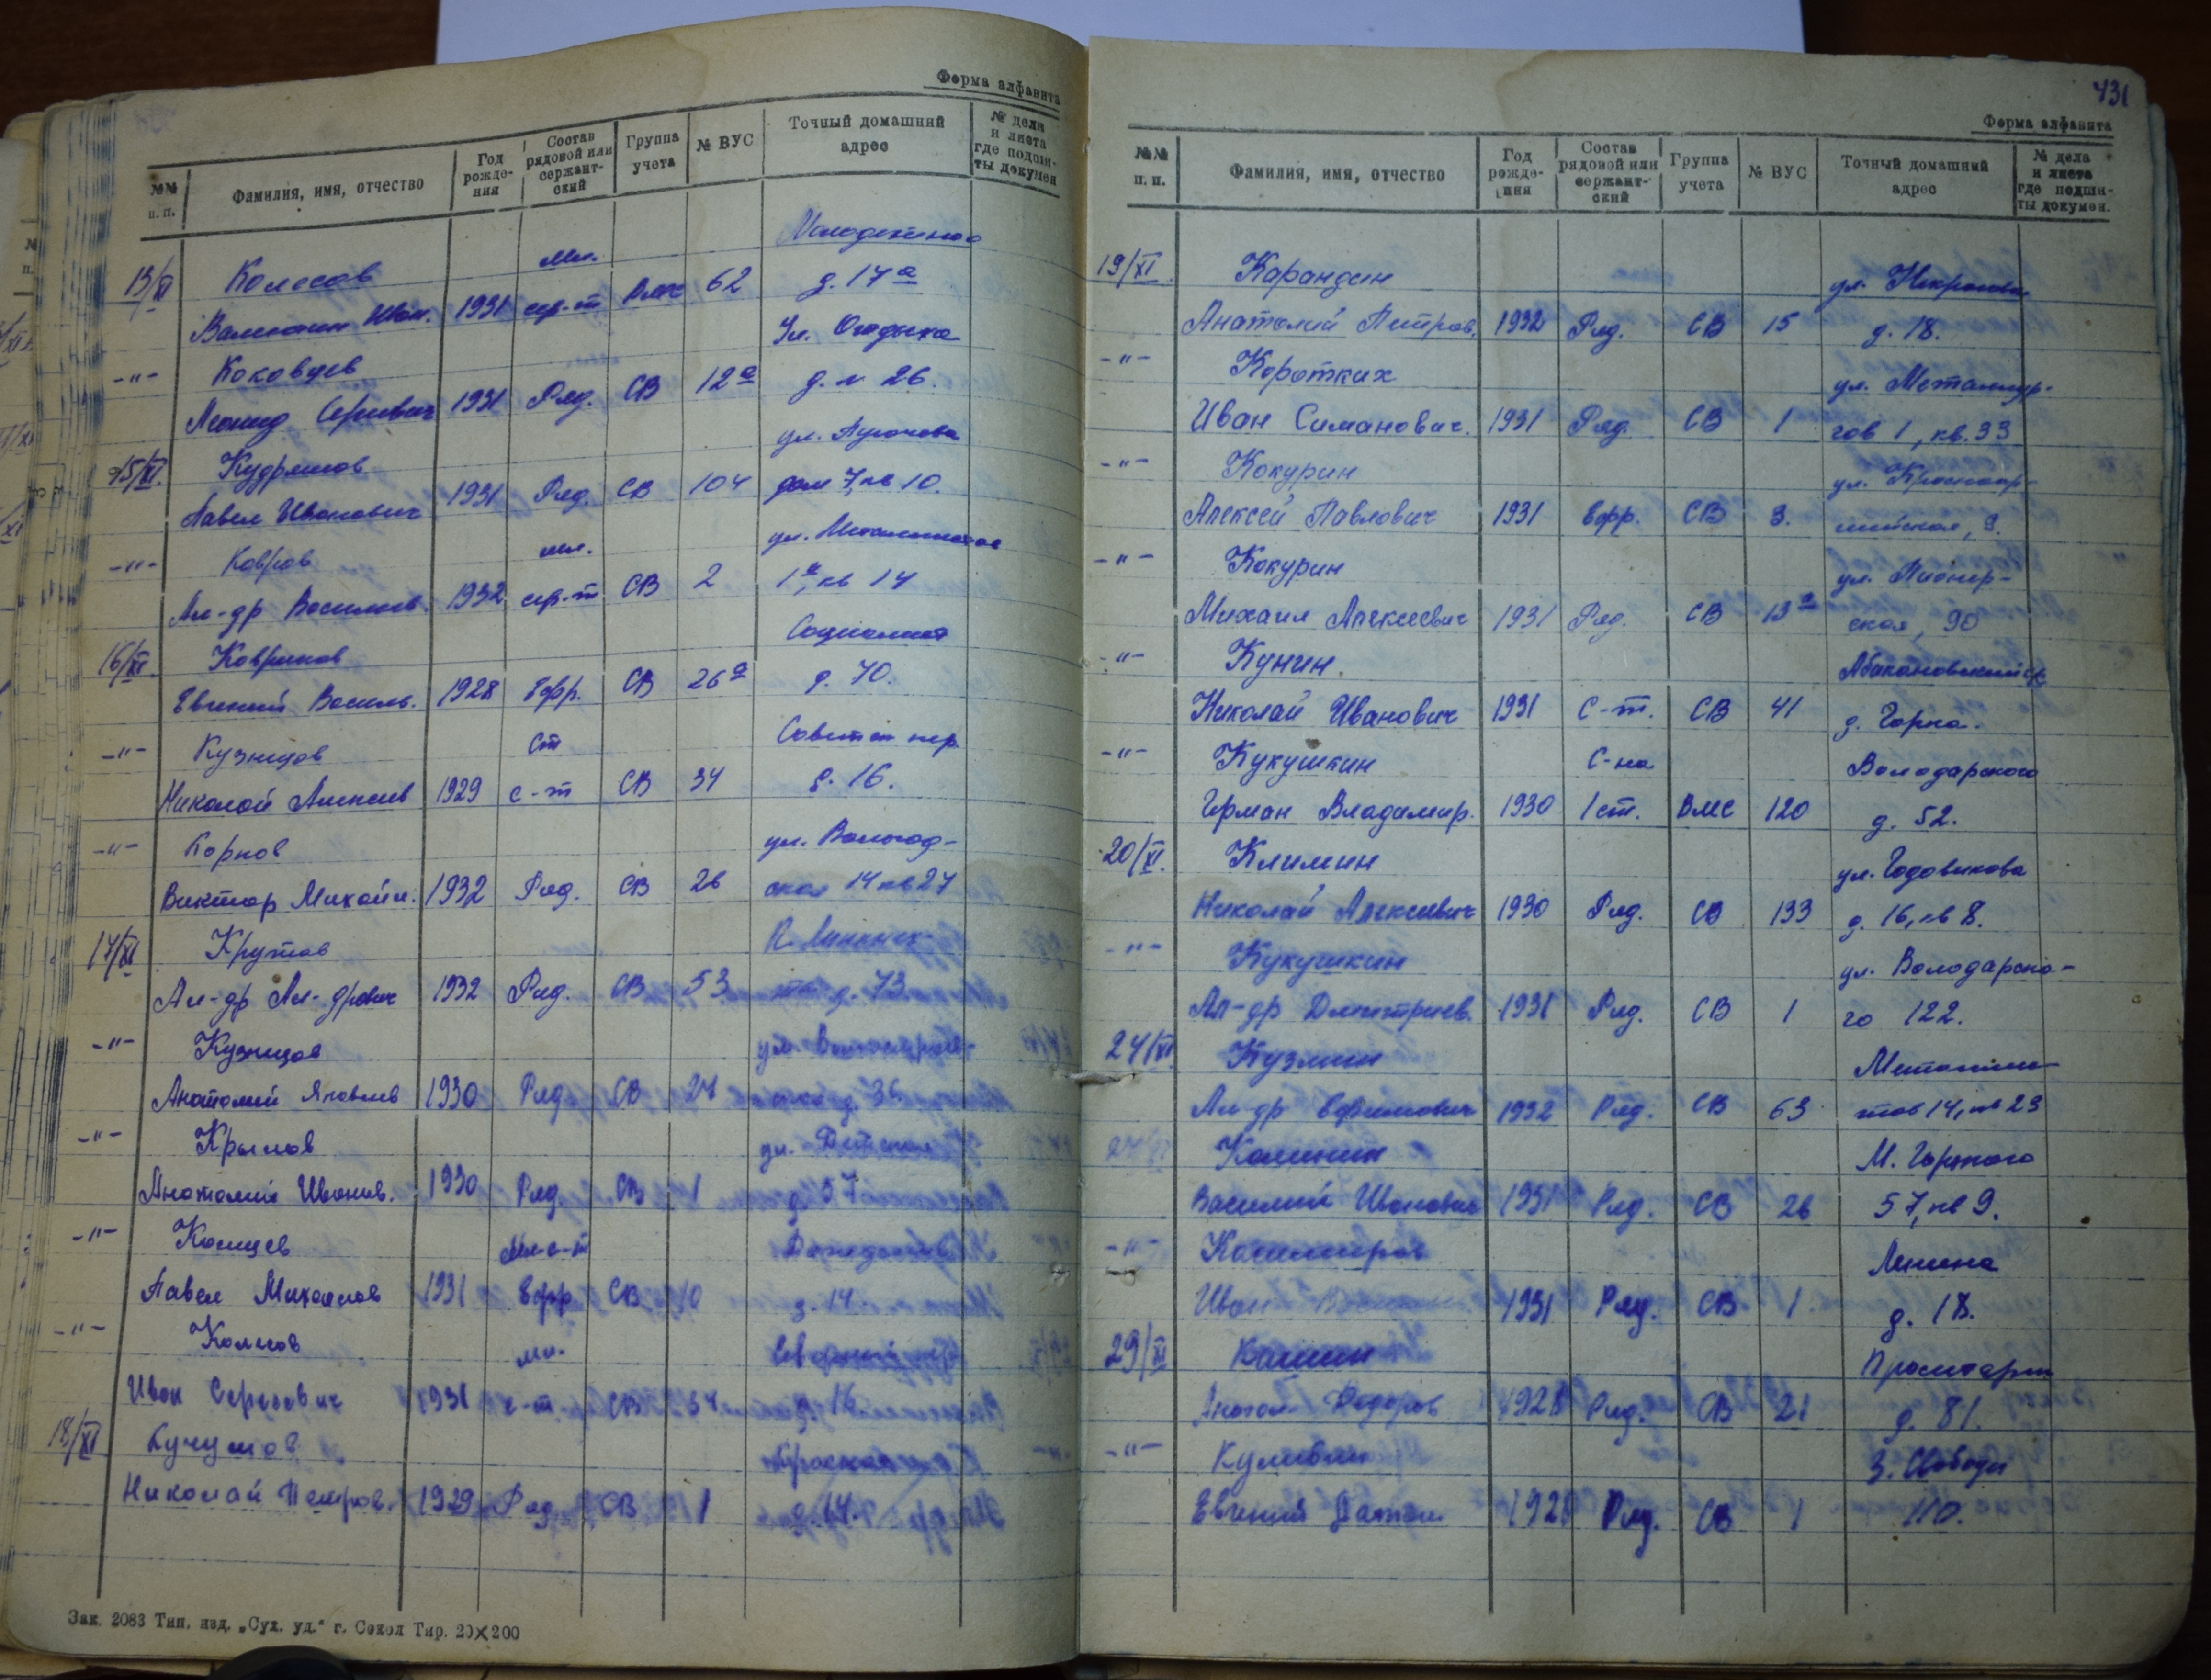 Форма алфавита
№№ п. п. Фамилия, имя, отчество Год рожде- ния Состав рядовой или сержант- ский Группа учета № ВУС Точный домашний адрес № дела и листа где подши- ты докумен
13/XI Колесов Мл.
1931 сер-т 62 д. 17а
-"- Коковцев Ул. Отдыха
Леонид Сергеевич 1931 Ряд. СВ 12а д. № 26.
15/XI. Кудряшов ул. Пугачева
Павел Иванович 1931 Ряд. СВ 104 дом 7, кв 10.
-"- Ковров мл. ул.
Ал-др Васильев. 1932 сер-т СВ 2 1а, кв 14
16/XI. Ковриков Социалист
Евгений Василь. 1928 Ефр. СВ 26а д. 70.
-"- Кузнецов Ст Советск пер.
Николай Алексеев 1929 с-т СВ 34 д. 16.
-"- Корнов ул. Вологод-
Виктор Михайл. 1932 Ряд. СВ 26 ская 14 кв 27
17/XI Крутов
Ал-др Ал-дрович 1932 Ряд. СВ 53 д. 73
-"- Кузнецов ул.
Анатолий Яковлев 1930 Ряд СВ 27 д. 36
-"- Крылов ул. Детская
Анатолий Иванов. 1930 Ряд СВ 1 д 57
-"- Мл-с-т
Павел Михайлов 1931 Ефр СВ 10 д. 14
-"- Колесов мл. Северный
Иван Сергеевич 1931 с-т СВ 34 д 16
18/XI Кучумов
Николай Петров. 1929 Ряд. СВ 1 д. 14.
Зак. 2083 Тип. изд. „Сух. уд.“ г. Сокол Тир. 20×200
431
Форма алфавита
№№ п. п. Фамилия, имя, отчество Год рожде- ния Состав рядовой или сержант- ский Группа учета № ВУС Точный домашний адрес № дела и листа где подши- ты докумен.
19/XI. Карандин ул. Некрасова
Анатолий Петров. 1932 Ряд. СВ 15 д. 18.
-"- Коротких ул. Металлур-
Иван Симанович. 1931 Ряд. СВ 1 гов 1, кв. 33
-"- Кокурин ул.
Алексей Павлович 1931 Ефр. СВ 3.
-"- Кокурин ул. Пионер-
Михаил Алексеевич 1931 Ряд. СВ 13а ская, 90
-"- Кунин.
Николай Иванович 1931 с-т. СВ 41 д. Горка.
-"- Кукушкин С-на Володарского
Герман Владимир. 1930 1 ст. ВМС 120 д. 52.
20/XI. Климин ул. Годовикова
Николай Алексеевич 1930 Ряд. СВ 133 д. 16, кв 8.
-"- Кукушкин ул. Володарско-
Ал-др Дмитриев. 1931 Ряд. СВ 1 го 122.
24/XI Кузмин
Ал-др Ефимович 1932 Ряд. СВ 63 14, кв 23
Калинин М. Горького
Василий Иванович 1931 Ряд. СВ 26 57, кв 9.
-"- Ленина
Иван 1931 Ряд. СВ 1. д. 18.
29/XI
Федоров 1928 Ряд. СВ 21 д. 81.
-"- Куливин З. Свободу
Евгений 1928 Ряд. СВ 1 110.